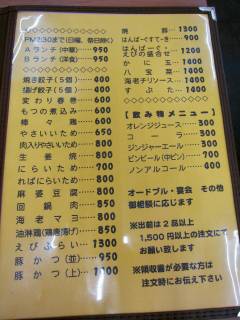 PM2:30まで(日曜、祭日除く)
Aランチ(中華) 950
Bランチ(洋食) 950
焼き餃子(5個) 400
揚げ餃子(5個) 400
変わり春巻 600
もつの煮込み 600
棒々鶏 600
やさいいため 650
肉入りやさいいため 800
生姜焼 800
にらいため 700
ればにらいため 800
麻婆豆腐 800
回鍋肉 850
海老マヨ 850
油淋鶏(鶏唐揚げ) 850
えびふらい 1300
豚かつ(並) 950
豚かつ(上) 1300
焼豚 900
はんばーぐすてーき 900
はんばーぐ・
えびの盛合せ 1200
かに玉 1400
八宝菜 1400
海老チリソース 1400
すぶた 1400
【飲み物メニュー】
オレンジジュース 300
コーラ 300
ジンジャーエール 300
ビンビール(中ビン) 700
ノンアルコール 400
オードブル・宴会 その他
御相談に応じます
※出前は2品以上
1,500円以上の注文にて
お願い致します
※領収書が必要な方は
注文時にお伝え下さい